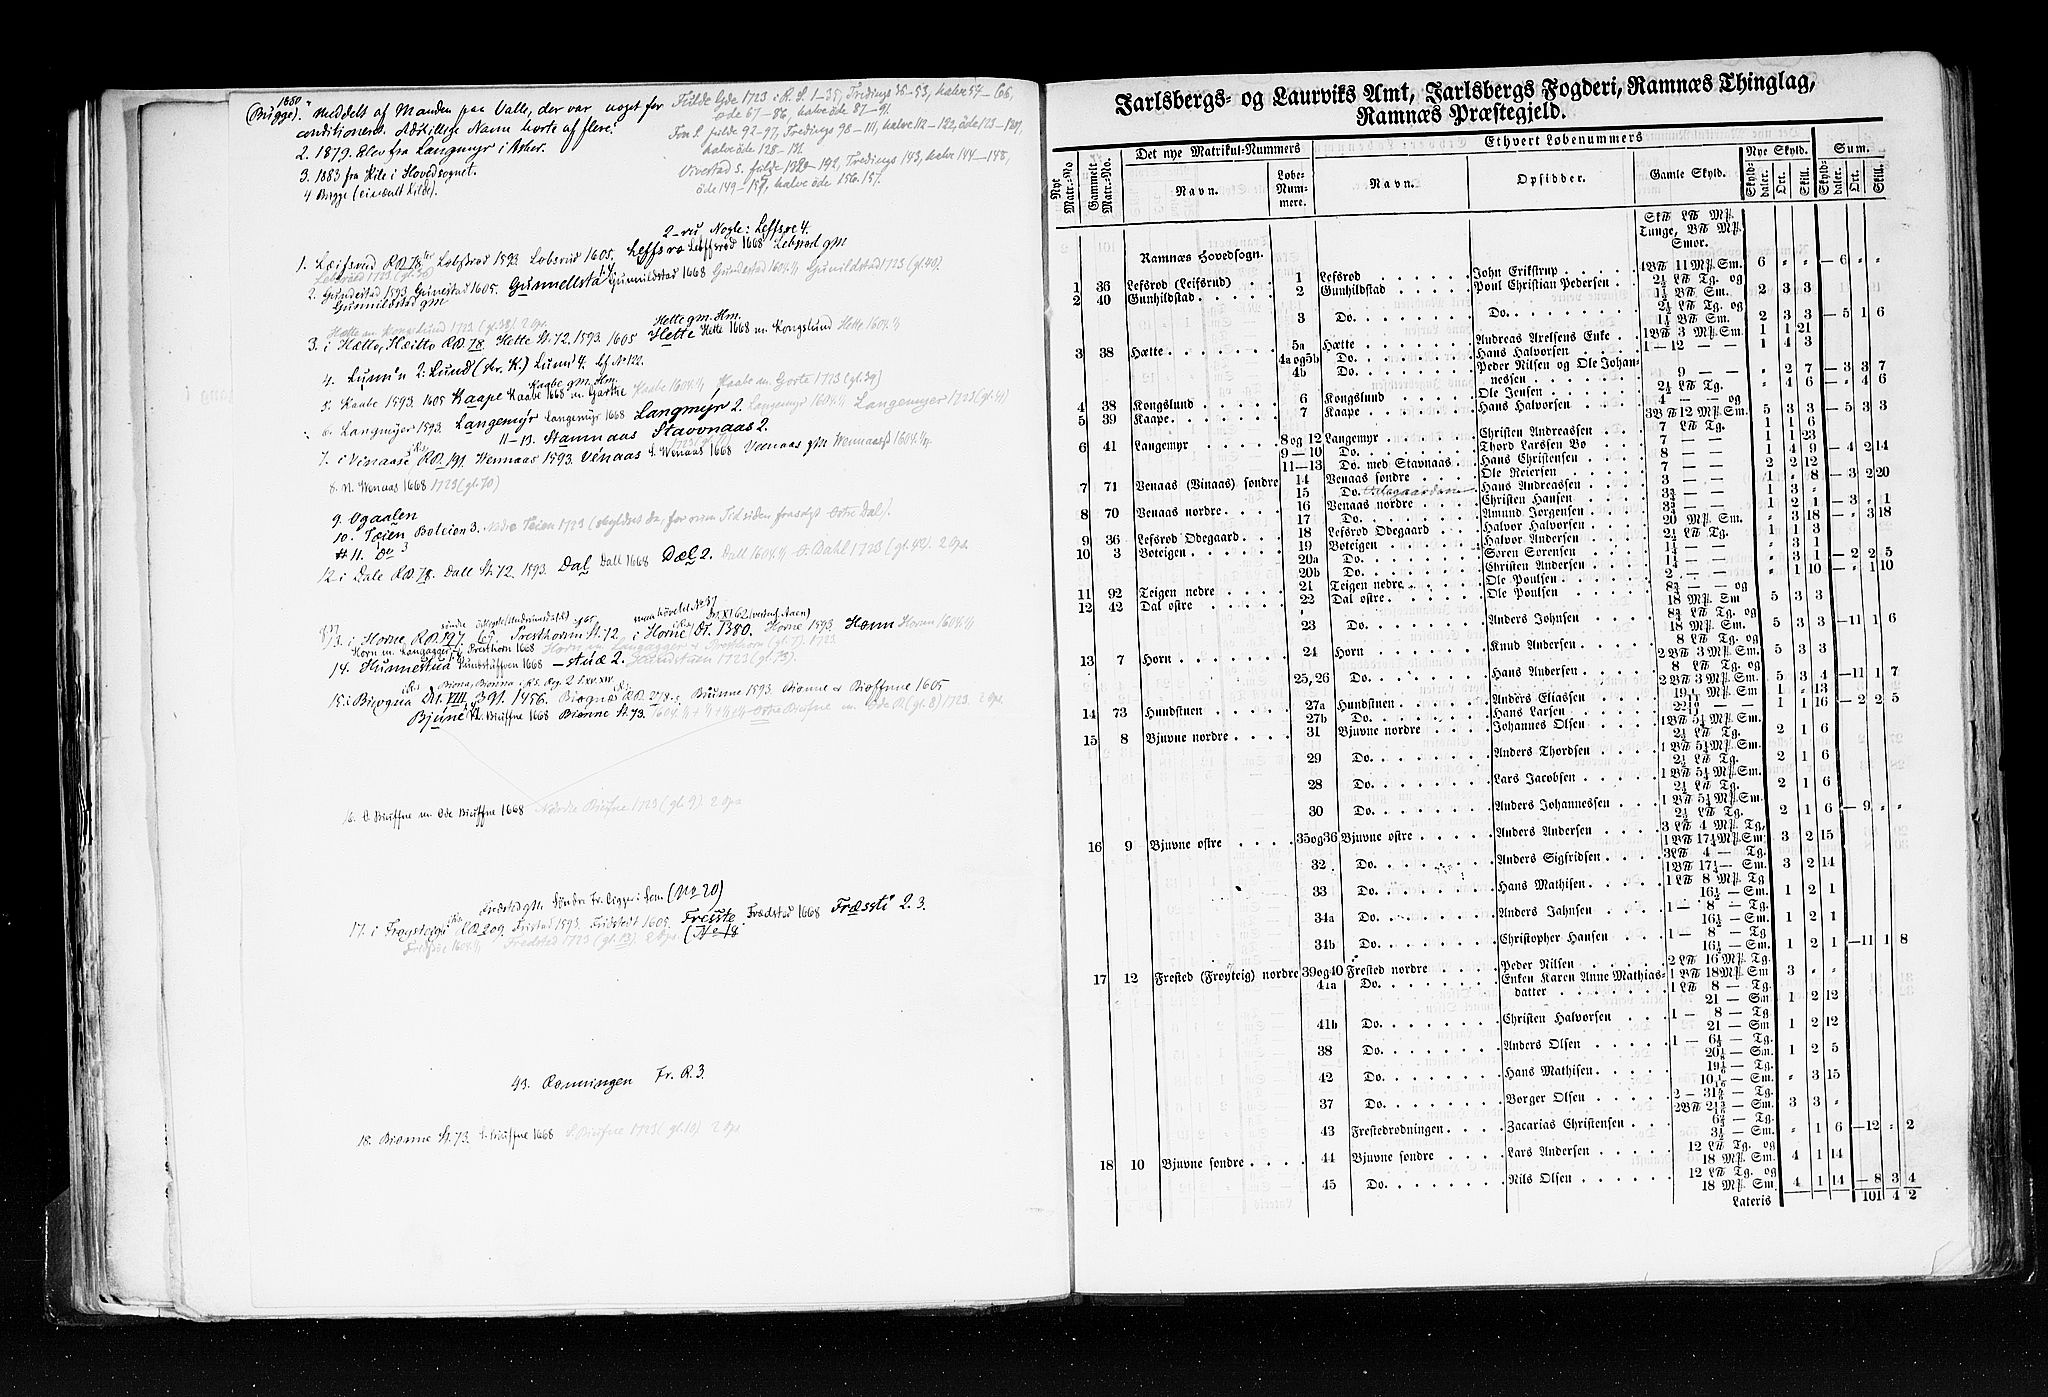 1880
(Bugge). Meddelt af Manden paa Valle, der var noget for
conditioneret. Adskillige Navne hørte af flere.
2. 1879. Elev fra Langmyr i Asker.
3. 1883 fra Kile i Hovedsognet.
4 Bugge
Fulde Gde 1723 i R. S. 1-35, Tredings 36-53, halve 54-66,
öde 67-86, halve öde 87-91.
Fon S. fulde 92-97, Tredings 98-111, halve 112-122, öde 123-127,
halve öde 128-131
Vivestad S. fulde 132-142, Tredings 143, halve 144-148,
öde 149-155, halve öde 156-157.
2-ru Nogle: Leffsroe 4.
1. Læifsrud RB 78 Lebssrod 1593 Lobsrud 1605. Leffsro Leffsrød 1668 Lebsrød gm
2. Gundestad 1593 Gunestad 1605. Gunnellsta Gunnildstad 1668 Gundestad 1604.1/1 Gunildstad 1723 (gl. 40).
Gunnildstad gm
Hette m. Kongslund 1723 (gl. 38). 2 Ops.
Hette gm. Hm.
3. i Hætto, Hæitto RB 78. Hette St. 72. 1593. 1605 Hette Hette 1668 m. Kongslund Hette 1604.1/1
4. Lunn'n 2: Lund (str. K.) Lunn 4. cf No 122.
Kaabe gm. Hm.
5. Kaabe 1593. 1605 Kaape Kaabe 1668 m. Garthe Kaabe 1604.1/1 Kaabe m. Gorte 1723 (gl. 39)
6. Langmyer 1593. Langemyr Langemyr 1668 Langmyr 2. Langemyr 1604.1/1 Langemyer 1723 (gl. 41)
11-13. Stamnaas Stavvnaas 2.
7. i Vinaase RB. 191. Wennaas 1593. Venaas S. Wenaas 1668 Vennaas gm Wennaass 1604.1/1
8. N. Wenaas 1668 1723 (gl. 70)
9. Ögaalen
10. Tæien Boteien 3. Nedre Teien 1723
# 11. de 3
12. i Dale RB. 78. Dall St. 72. 1593. Dal Dall 1668 Dæl 2. Dall 1604.1/1 Ö. Dahl 1723 (gl. 42). 2 Ops.
13. i Horne RB 197. 69. Presthorn St. 72. i Horne Dr. 1380. Horne 1593 Honn Horen 1604.1/1
Horn m. Langagger Presthorn 1668
14. Hunnestua Hundstuffven 1668 -stuæ 2. Hundstuen 1723 (gl. 73).
15. i Bivgna Dr. VIII. 391. 1456. Biognæ RB 218. Biünne 1593 Bionne Bioffnne 1605
Bjune N. Biuffne 1668 Bionne St. 73.
16. Ö. Biuffne m. Öde Biuffne 1668 Nordre Biufne 1723 (gl. 9). 2 Ops
(No 20)
17. i Frøystøygi RB 209. Fristad 1593. Fridstedt 1605. Freste Frædstad 1668 Fræssti 2. 3.
Fredstad 1723 2 Ops (No 18
43. Rønningen Fr. R. 3.
18. Bionne St. 73. S. Biuffne 1668 S. Biufne 1723 (gl. 10) 2 Ops
Jarlsbergs- og Laurviks Amt, Jarlsbergs Fogderi, Ramnæs Thinglag,
Ramnæs Præstegjeld.
Nye Matr.-No. Gammelt Matr.-No. Det nye Matrikul-Nummers Ethvert Løbenummers Nye Skyld. Sum.
Navn. Løbe-Nummere. Navn. Opsidder. Gamle Skyld. Skylddaler. Ort. Skill. Skylddaler. Ort. Skill.
Sk℔ L℔ Mk.
Tunge, B℔ Mk.
Smør.
Ramnæs Hovedsogn.
1 36 Lefsrød (Leifsrud) . . 1 Lefsrød . . . . . . John Erikstrup . . . . 1B℔ 11 Mk. Sm. 6 " " — 6 " "
2 40 Gunhildstad . . . . . 2 Gunhildstad . . . . Poul Christian Pedersen . . 2½ L℔ Tg. og
1½ B℔ Sm. 2 3 3
3 Do. . . . . . . . Do. . . . . . . . . 2½ L℔ Tg. og
1½ B℔ Sm. 2 3 3 — 5 1 6
3 38 Hætte . . . . . . . 5a Hætte . . . . . . Andreas Axelsens Enke . . 1B℔ 3 Mk. Sm. 1 1 21
4a og 5b Do. . . . . . . . Hans Halvorsen . . . . 1 — 12 — — 1 4 3
4b Do. . . . . . . . Peder Nilsen og Ole Johan-
nessen . . . . . . . 9 — — " 2 7 — 3 3 7
4 38 Kongslund . . . . . 6 Kongslund . . . . . Ole Jensen . . . . . 2½ L℔ Tg. " 4 6 — " 4 6
5 39 Kaape . . . . . . . 7 Kaape . . . . . . Hans Halvorsen . . . . 4 — — og
3B℔ 12 Mk. Sm. 5 3 3 — 5 3 3
6 41 Langemyr . . . . . 8 og 12 Langemyr . . . . . Christen Andreassen . . . 7 L℔ Tg. 1 1 6
9—10 Do. . . . . . . . Thord Larssen Bø . . . 7 — — 1 1 23
11—13 Do. med Stavnaas . . Hans Christensen . . . 8 — — 1 4 9 — 4 2 14
7 71 Venaas (Vinaas) søndre 14 Venaas søndre . . . . Ole Reiersen . . . . . 7 — — 2 2 12
15 Do. Ødegaarden Hans Andreassen . . . 3 — — 1 " 8 — 3 2 20
8 70 Venaas nordre . . . . 16 Venaas nordre . . . . Christen Hansen . . . . 3¾ — — 1 3 "
17 Do. . . . . . . . Amund Jørgensen . . . 3¾ — — 1 2 1 — 3 " 1
9 36 Lefsrød Ødegaard . . . 18 Lefsrød Ødegaard . . Halvor Halvorsen . . . 20 Mk. Sm. " 3 18 — " 3 18
10 3 Boteigen . . . . . . 19 Boteigen . . . . . Halvor Andersen . . . . 2½ L℔ Tg. 1 1 3
20a Do. . . . . . . . Søren Sørensen . . . . 1¼ — — " 3 1
20b Do. . . . . . . . Christen Andersen . . . 1¼ — — " 3 1 — 2 2 5
11 92 Teigen nedre . . . . 21 Teigen nedre . . . . Ole Poulsen . . . . . 2 — — " 1 10 — " 1 10
12 42 Dal østre . . . . . . 22 Dal østre . . . . . Ole Poulsen . . . . . 8¾ — — og
18 Mk. Sm 5 3 3
23 Do. . . . . . . . Anders Johnsen . . . . 8¾ L℔ Tg. og
18 Mk. Sm. 5 3 3 — 11 1 6
13 7 Horn . . . . . . . 24 Horn . . . . . . . Knud Andersen . . . . 8 L℔ Tg. og
2 B℔ 3 Mk. Sm. 5 3 3
25, 26 Do. . . . . . . . Hans Andersen . . . . 8 L℔ Tg. og
2 B℔ 3 Mk. Sm. 5 3 4 — 11 1 7
14 73 Hundstuen . . . . . 27a Hundstuen . . . . . Anders Eliassen . . . . Mk Sm 1 " 13
27b Do. . . . . . . . Hans Larsen . . . . . 1 1 16 — 2 2 5
15 8 Bjuvne nordre . . . . 31 Bjuvne nordre . . . . Johannes Olsen . . . . 1 B℔ 5¼ Mk. Sm.
2¼ L℔ Tg. 2 1 6
29 Do. . . . . . . . Anders Thordsen . . . . 1 B℔ 5¼ Mk. Sm.
2¼ L℔ Tg. 2 1 6
28 Do. . . . . . . . Lars Jacobsen . . . . 1 B℔ 5¼ Mk. Sm.
2¼ L℔ Tg. 2 1 6
30 Do. . . . . . . . Anders Johannessen . . . 1 B℔ 5¼ Mk. Sm.
2¼ L℔ Tg. 2 1 6 — 9 " "
16 9 Bjuvne østre . . . . 35 og 36 Bjuvne østre . . . . . Anders Andersen . . . . 3 L℔ 4 Mk. Tg.
1 B℔ 17¼ Mk. Sm. 3 2 15
32 Do. . . . . . . . Anders Sigfridsen . . . . 3L℔ 4 — Tg.
1B℔ 17¼ — Sm. 3 2 14
33 Do. . . . . . . . Hans Mathisen . . . . 1 L℔ 8 Mk. Tg
16½ — Sm. 1 2 1
34a Do. . . . . . . . Anders Jahnsen . . . . 1 — 8 — Tg.
16½ — Sm. 1 2 1
34b Do. . . . . . . . Christopher Hansen . . . 1 — 8 — Tg.
16½ — Sm. 1 2 1 — 11 1 8
17 12 Frested (Frøyteig) nordre 39 og 40 Frested nordre . . . . Peder Nilsen . . . . . 2 L℔ 16 Mk. Tg.
1 B℔ 18 Mk. Sm 3 " "
41a Do. . . . . . . . Enken Karen Anne Mathias-
datter . . . . . . . 1 L℔ 8 — Tg.
21 — Sm. 1 2 12
41b Do. . . . . . . . Christen Halvorsen . . . 1 — 8 — Tg.
21 — Sm 1 2 12
38 Do. . . . . . . . Anders Olsen . . . . . 1 — 6½ — Tg.
20⅛ — Sm. 1 2 5
42 Do. . . . . . . . Hans Mathisen . . . . — Tg.
— Sm. " 3 15
37 Do. . . . . . . . Borger Olsen . . . . . 2 — — Tg.
2B℔ — Sm. 3 3 "
43 Frestedrødningen . . . . Zacarias Christensen . . . — Tg.
3½ — Sm. " 1 6 — 12 " 2
18 10 Bjuvne søndre . . . . 44 Bjuvne søndre . . . . Lars Andersen . . . . . 12 L℔ Tg. og
18 Mk. Sm. 4 1 14
45 Do. . . . . . . . Nils Olsen . . . . . . 12 L℔ Tg. og
18 Mk. Sm. 4 1 14 — 8 3 4
Lateris 101 4 2